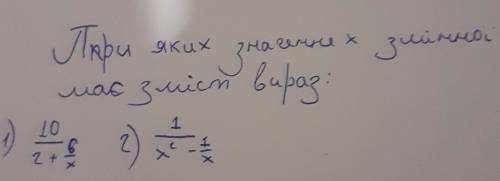 При яких значеннях змінної
має зміст вираз:
1) 10/(2 + 6/x) 2) 1/(x² - 1/x)